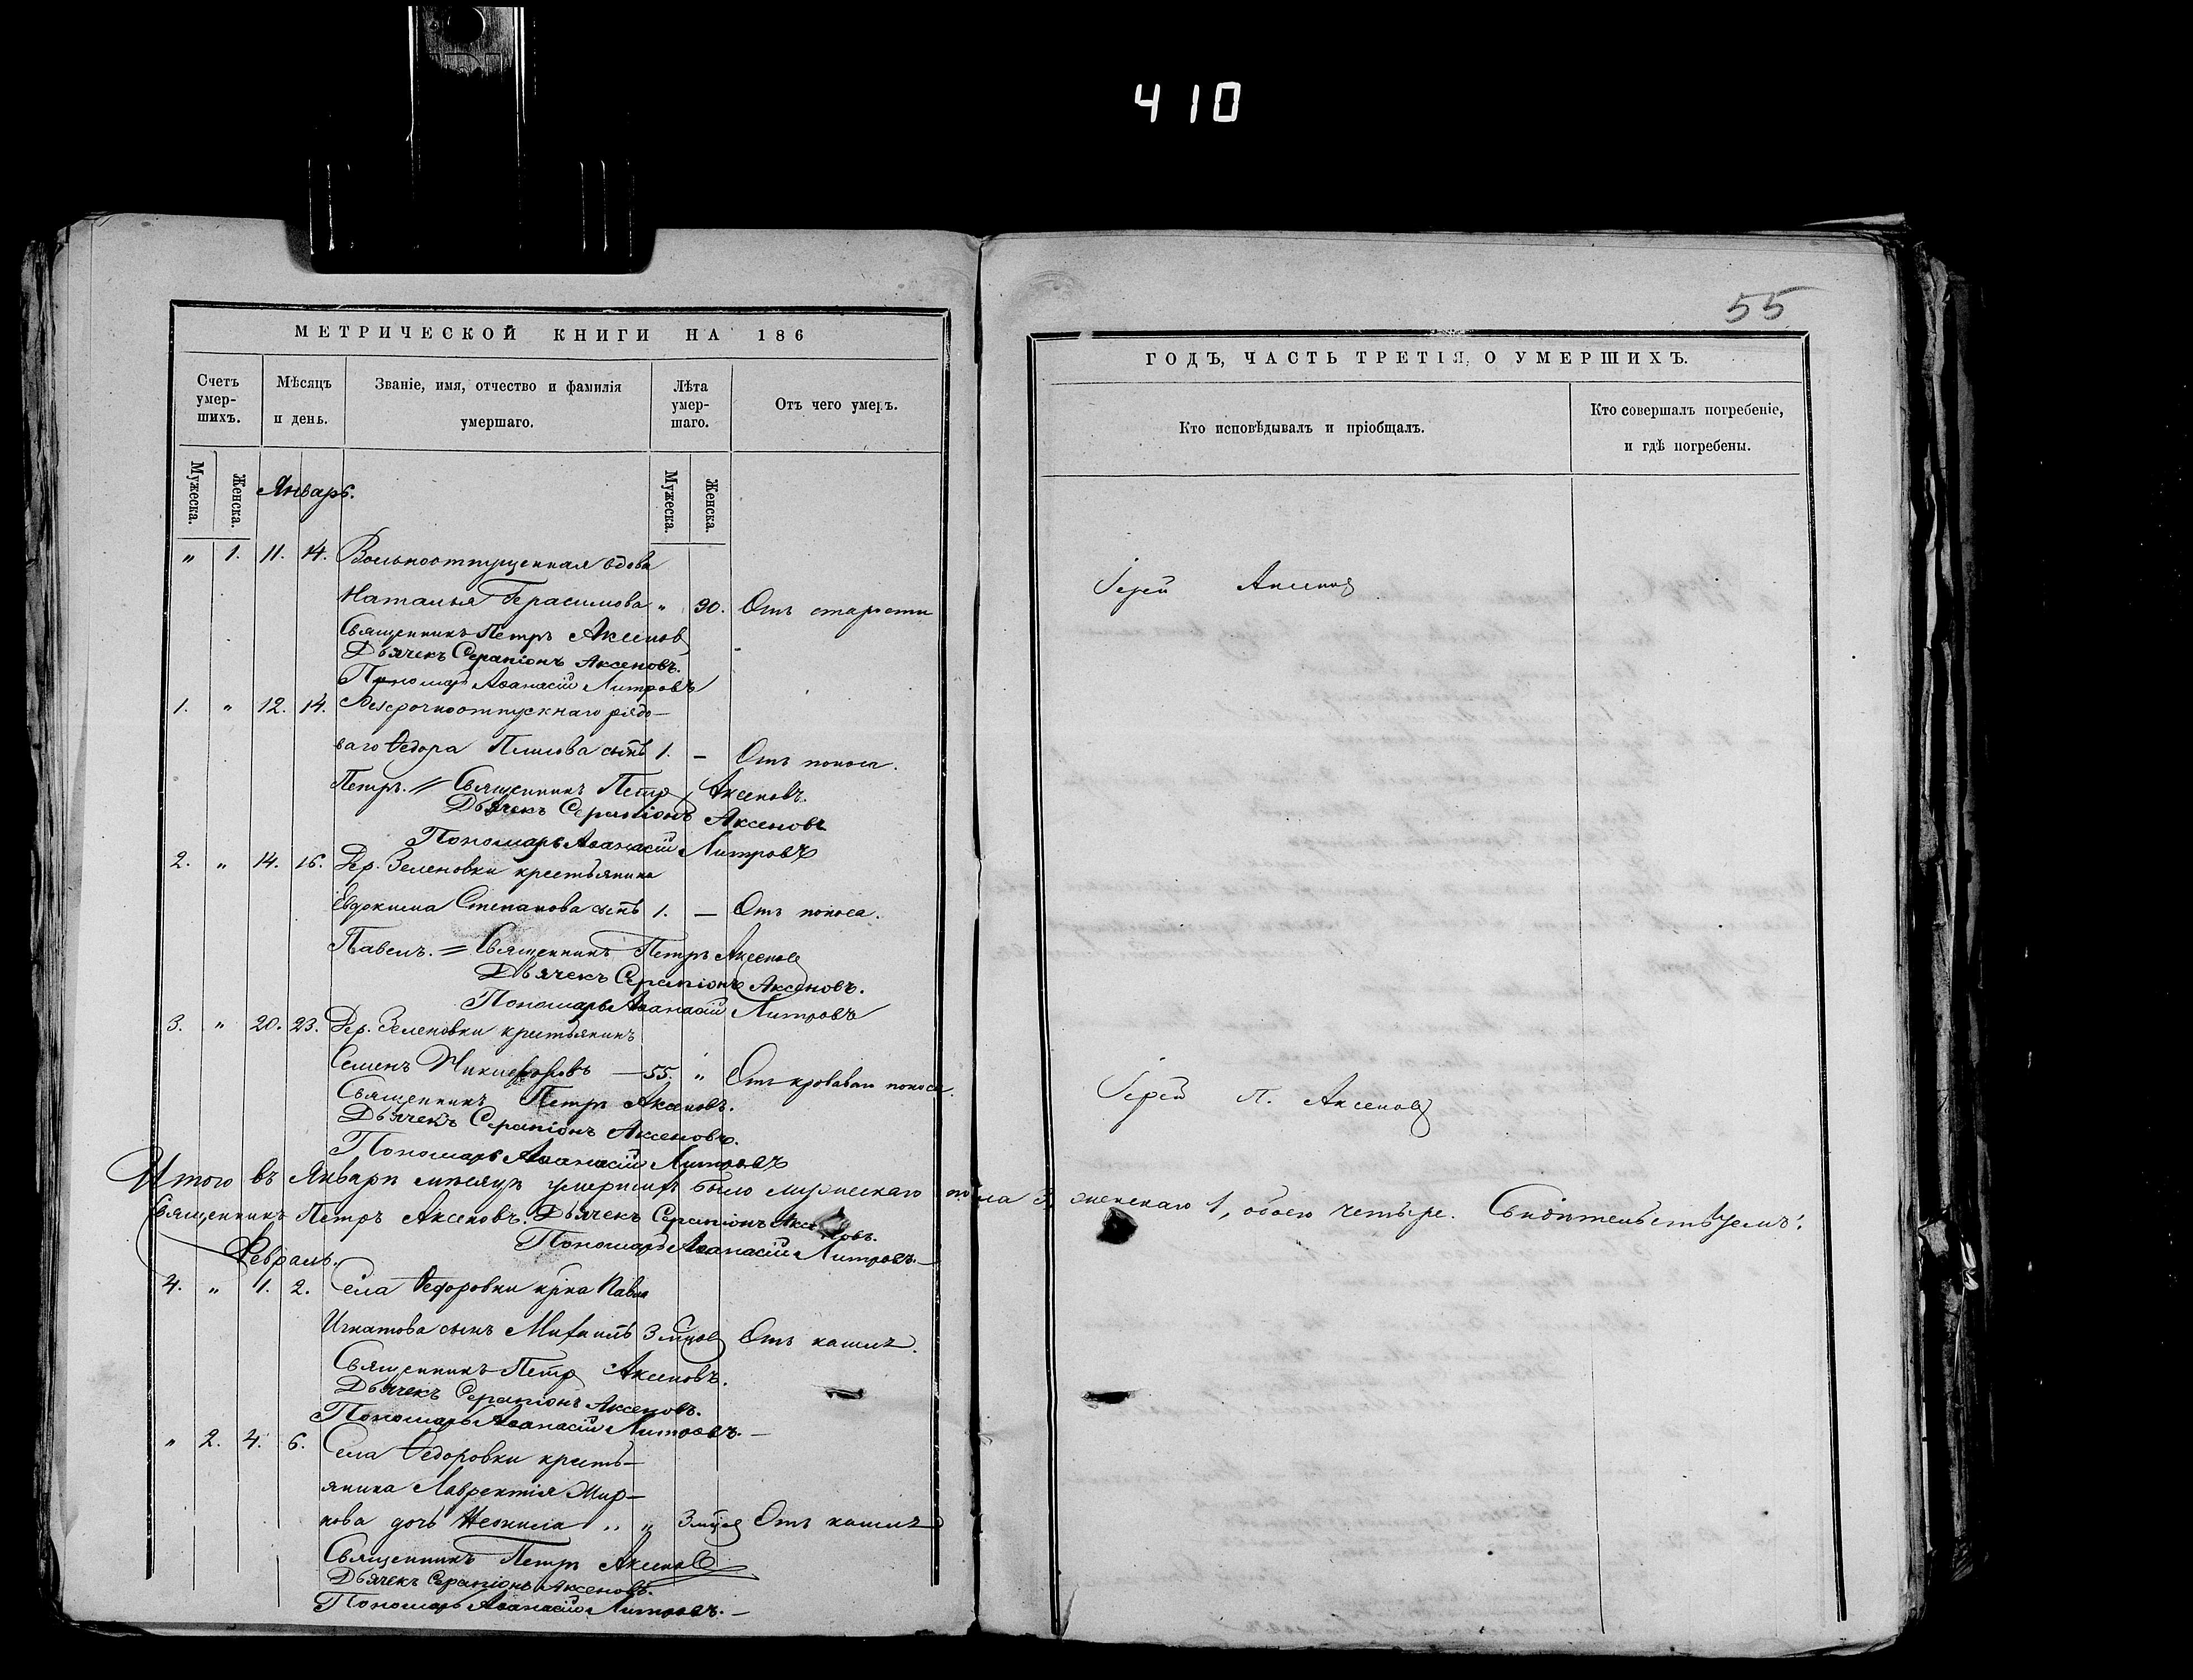 410
55
МЕТРИЧЕСКОЙ КНИГИ НА 186
Счетъ умер-шихъ.
Мѣсяцъ и день.
Званіе, имя, отчество и фамилія умершаго.
Лѣта умер-шаго.
Отъ чего умеръ.
Мужеска.
Женска.
Мужеска.
Женска.
Январь.
" 1. 11. 14. Вольноотпущенная вдова
Наталья Герасимова " 90. Отъ старости
Священникъ Петръ Аксенов
Дьячекъ Серапіонъ Аксеновъ.
Пономарь Аѳанасій Литровъ
1. " 12. 14. Безсрочноотпускнаго рядо-
ваго Ѳедора сынъ 1. — Отъ поноса.
Петръ. // Священникъ Петръ Аксеновъ.
Дьячекъ Серапіонъ Аксеновъ
Пономарь Аѳанасій Литровъ
2. " 14. 16. Дер. Зеленовки крестьянина
Евдокима Степанова сынъ 1. — Отъ поноса.
Павелъ. = Священникъ Петръ Аксенов
Дьячекъ Серапіонъ Аксеновъ.
Пономарь Аѳанасій Литровъ
3. " 20. 23. Дер. Зеленовки крестьянинъ
Семенъ Никифоровъ — 55. " Отъ кроваваго поноса.
Священникъ Петръ Аксеновъ.
Дьячекъ Серапіонъ Аксеновъ.
Пономарь Аѳанасій Литровъ
Итого въ Январѣ мѣсяцѣ умершихъ было мужескаго пола 3, женскаго 1, обоего четыре. Свидѣтельствуемъ:
Священникъ Петръ Аксеновъ. Дьячекъ Серапіонъ Аксеновъ.
Пономарь Аѳанасій Литровъ.—
Февраль.
4. " 1. 2. Села Ѳедоровки кр-на Павла
Игнатова сынъ Михаилъ 3 мцов Отъ кашля.
Священникъ Петръ Аксеновъ.
Дьячекъ Серапіонъ Аксеновъ.
Пономарь Аѳанасій Литровъ.—
" 2. 4. 6. Села Ѳедоровки кресть-
янина Лаврентія Мир-
нова дочь Неонила " " 3 мцев Отъ кашля
Священникъ Петръ Аксенов
Дьячекъ Серапіонъ Аксеновъ.
Пономарь Аѳанасій Литровъ.—
ГОДЪ, ЧАСТЬ ТРЕТІЯ, О УМЕРШИХЪ.
Кто исповѣдывалъ и пріобщалъ.
Кто совершалъ погребеніе, и гдѣ погребены.
Іерей Аксенов
Іерей П. Аксенов